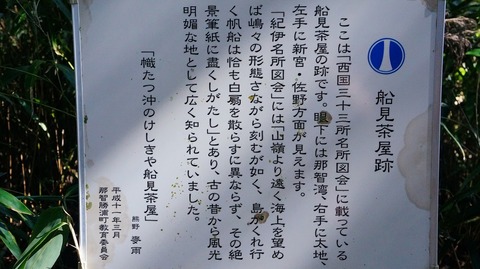 船見茶屋跡
ここは「西国三十三所名所図会」に載っている
船見茶屋の跡です。眼下には那智湾、右手に太地、
左手に新宮・佐野方面が見えます。
「紀伊名所図会」には「山嶺より遠く海上を望め
ば嶋々の形態さながら刻むが如く、島かくれ行
く帆船は恰も白鷺を散らすに異ならず、その絶
景筆紙に盡くしがたし」とあり、古の昔から風光
明媚な地として広く知られていました。
「幟たつ沖のけしきや船見茶屋」
熊野 夢雨
平成十一年三月
那智勝浦町教育委員会